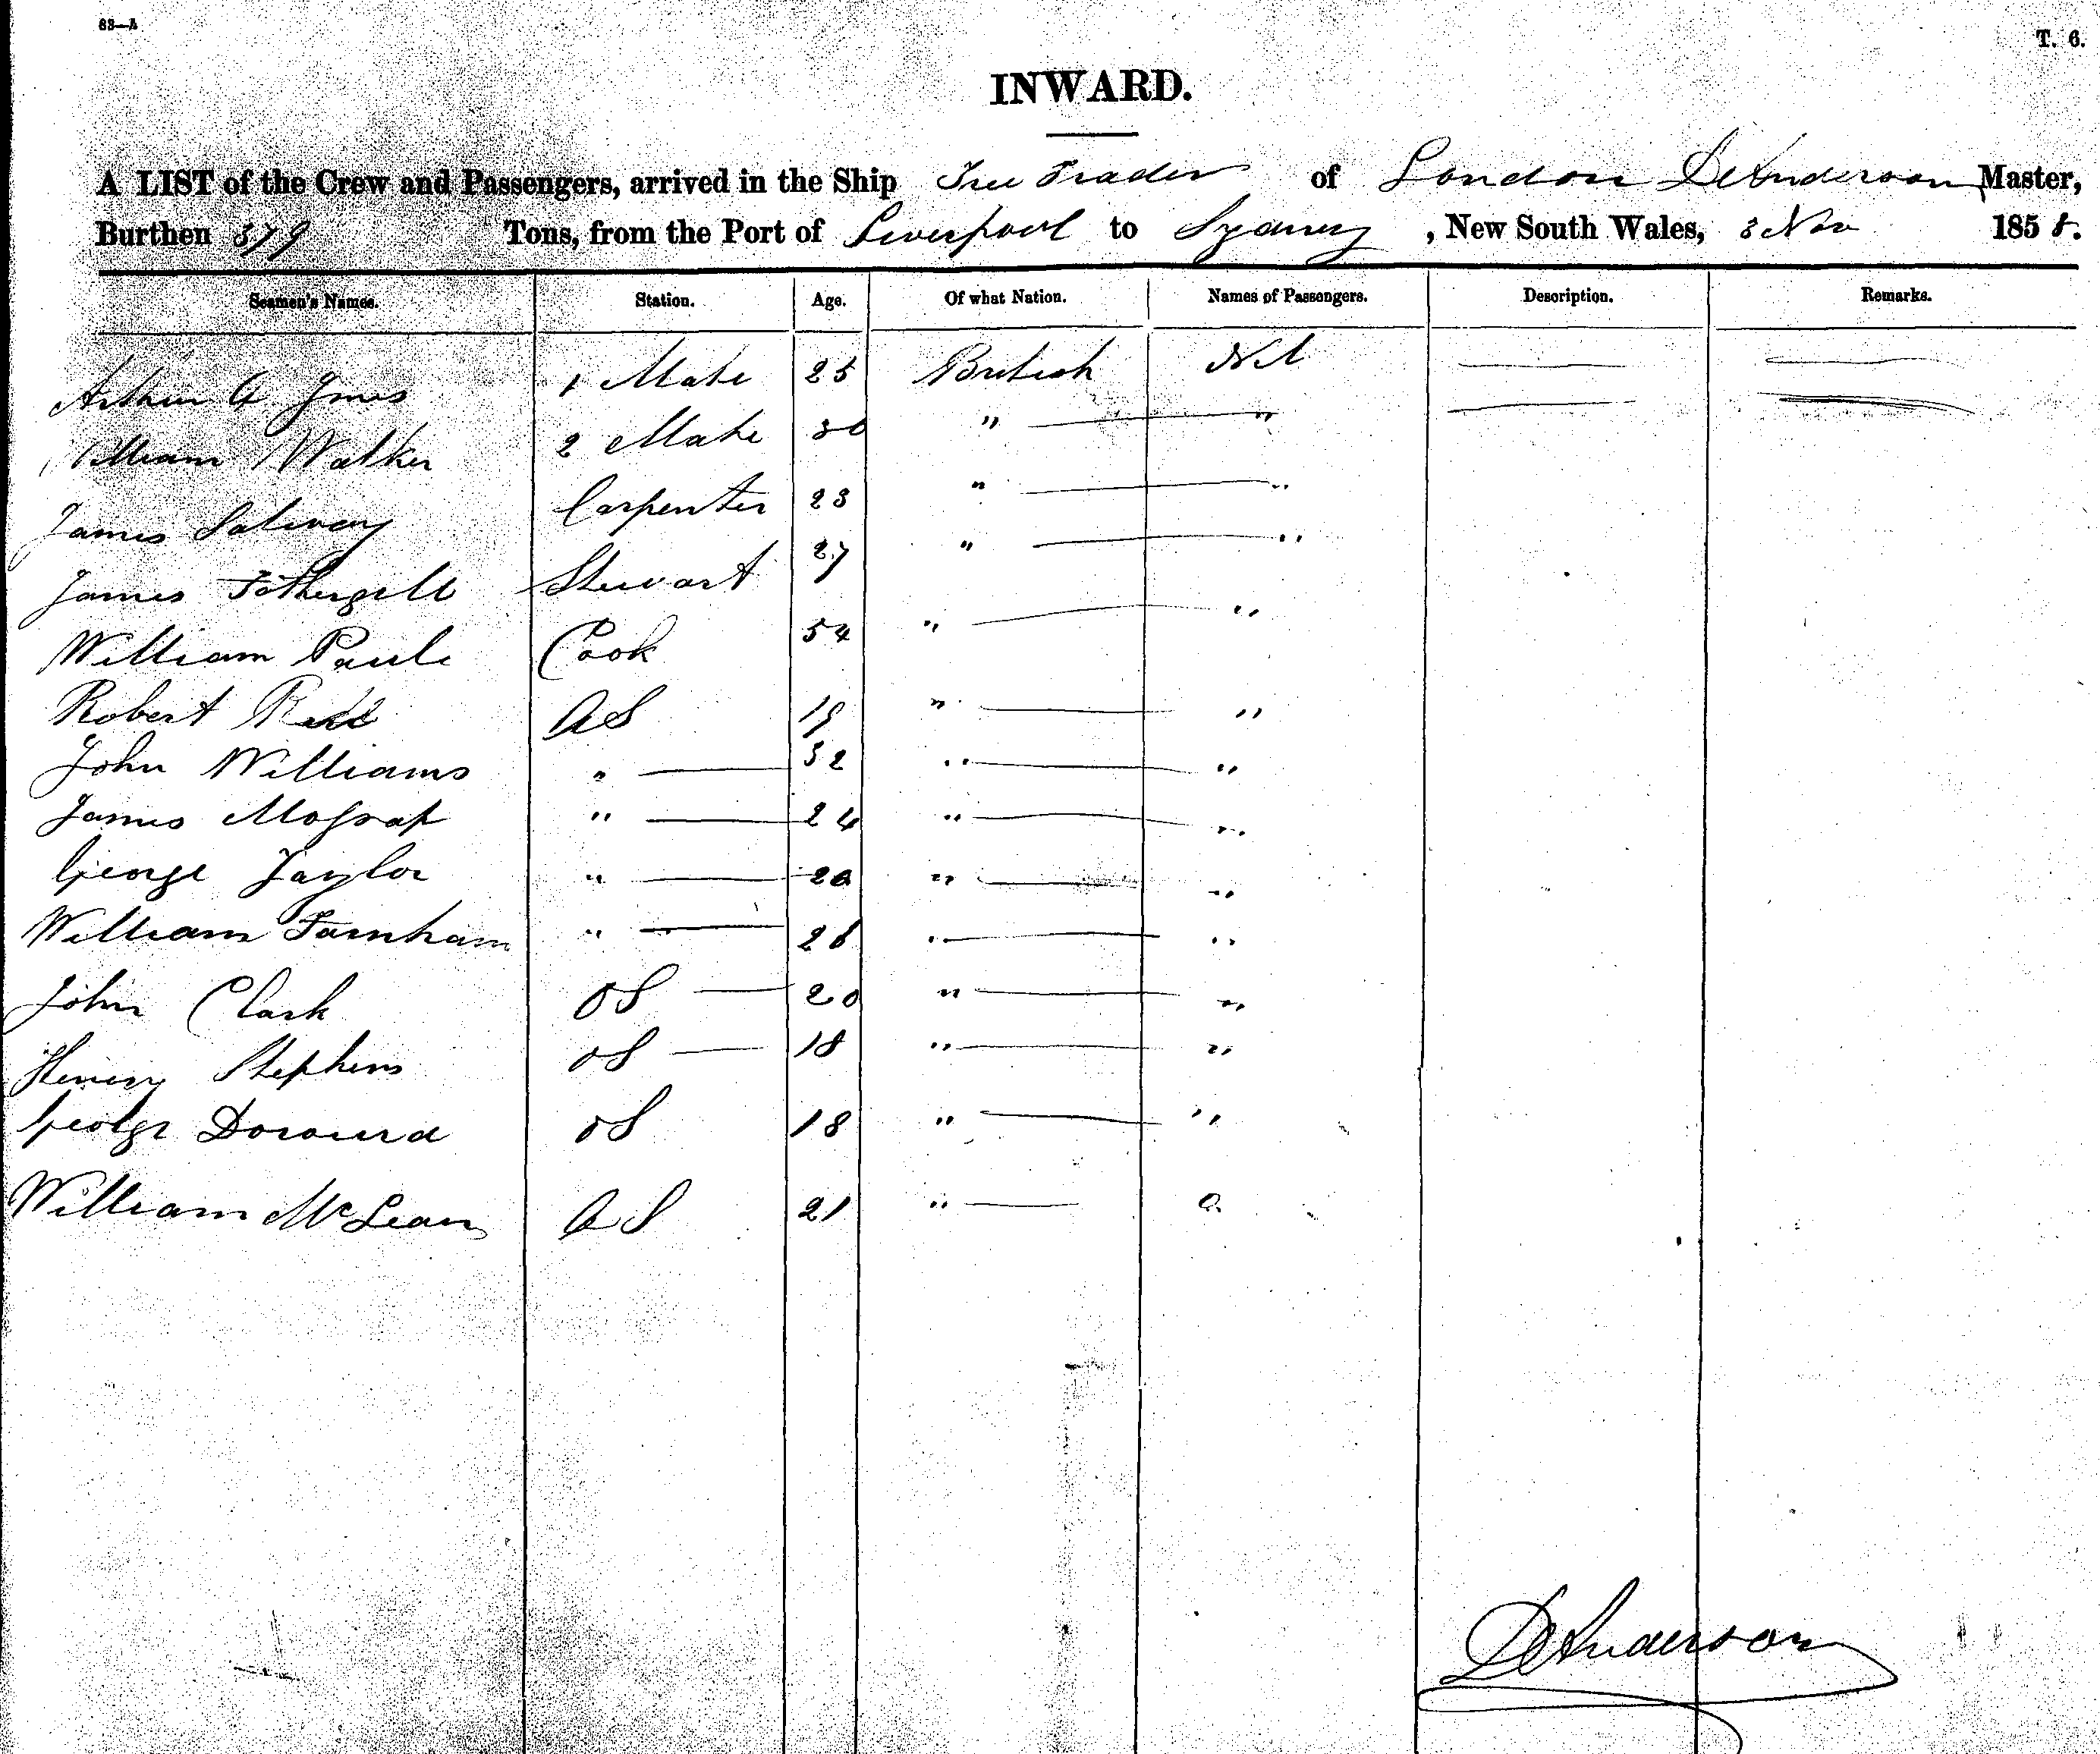 63—A
T. 6.
INWARD.
A LIST of the Crew and Passengers, arrived in the Ship Free Trader of London D Anderson Master,
Burthen 379 Tons, from the Port of Liverpool to Sydney, New South Wales, 3 Nov 1858.
Seamen's Names. Station. Age. Of what Nation. Names of Passengers. Description. Remarks.
Arthur A. Jones 1 Mate 25 British Nil
William Walker 2 Mate 30 " "
James Salway Carpenter 23 " "
James Fothergill Stewart 27 " "
William Paule Cook 54 " "
Robert AS 19 " "
John Williams " 32 " "
James " 24 " "
George Taylor " " "
William Farnham " 26 " "
John Clark OS 20 " "
Henery Stephens OS 18 " "
George OS 18 " "
William McLean AS 21 "
D Anderson